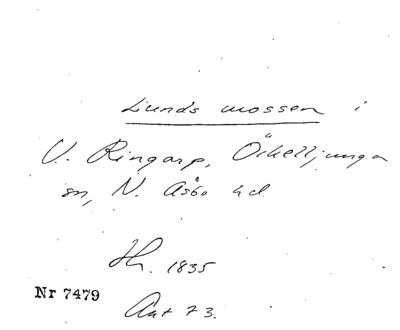 Lunds mossen i
V. Ringarp, Örkelljunga
sn, N. Åsbo hd
Hn. 1835
Nr 7479
Ant 73.